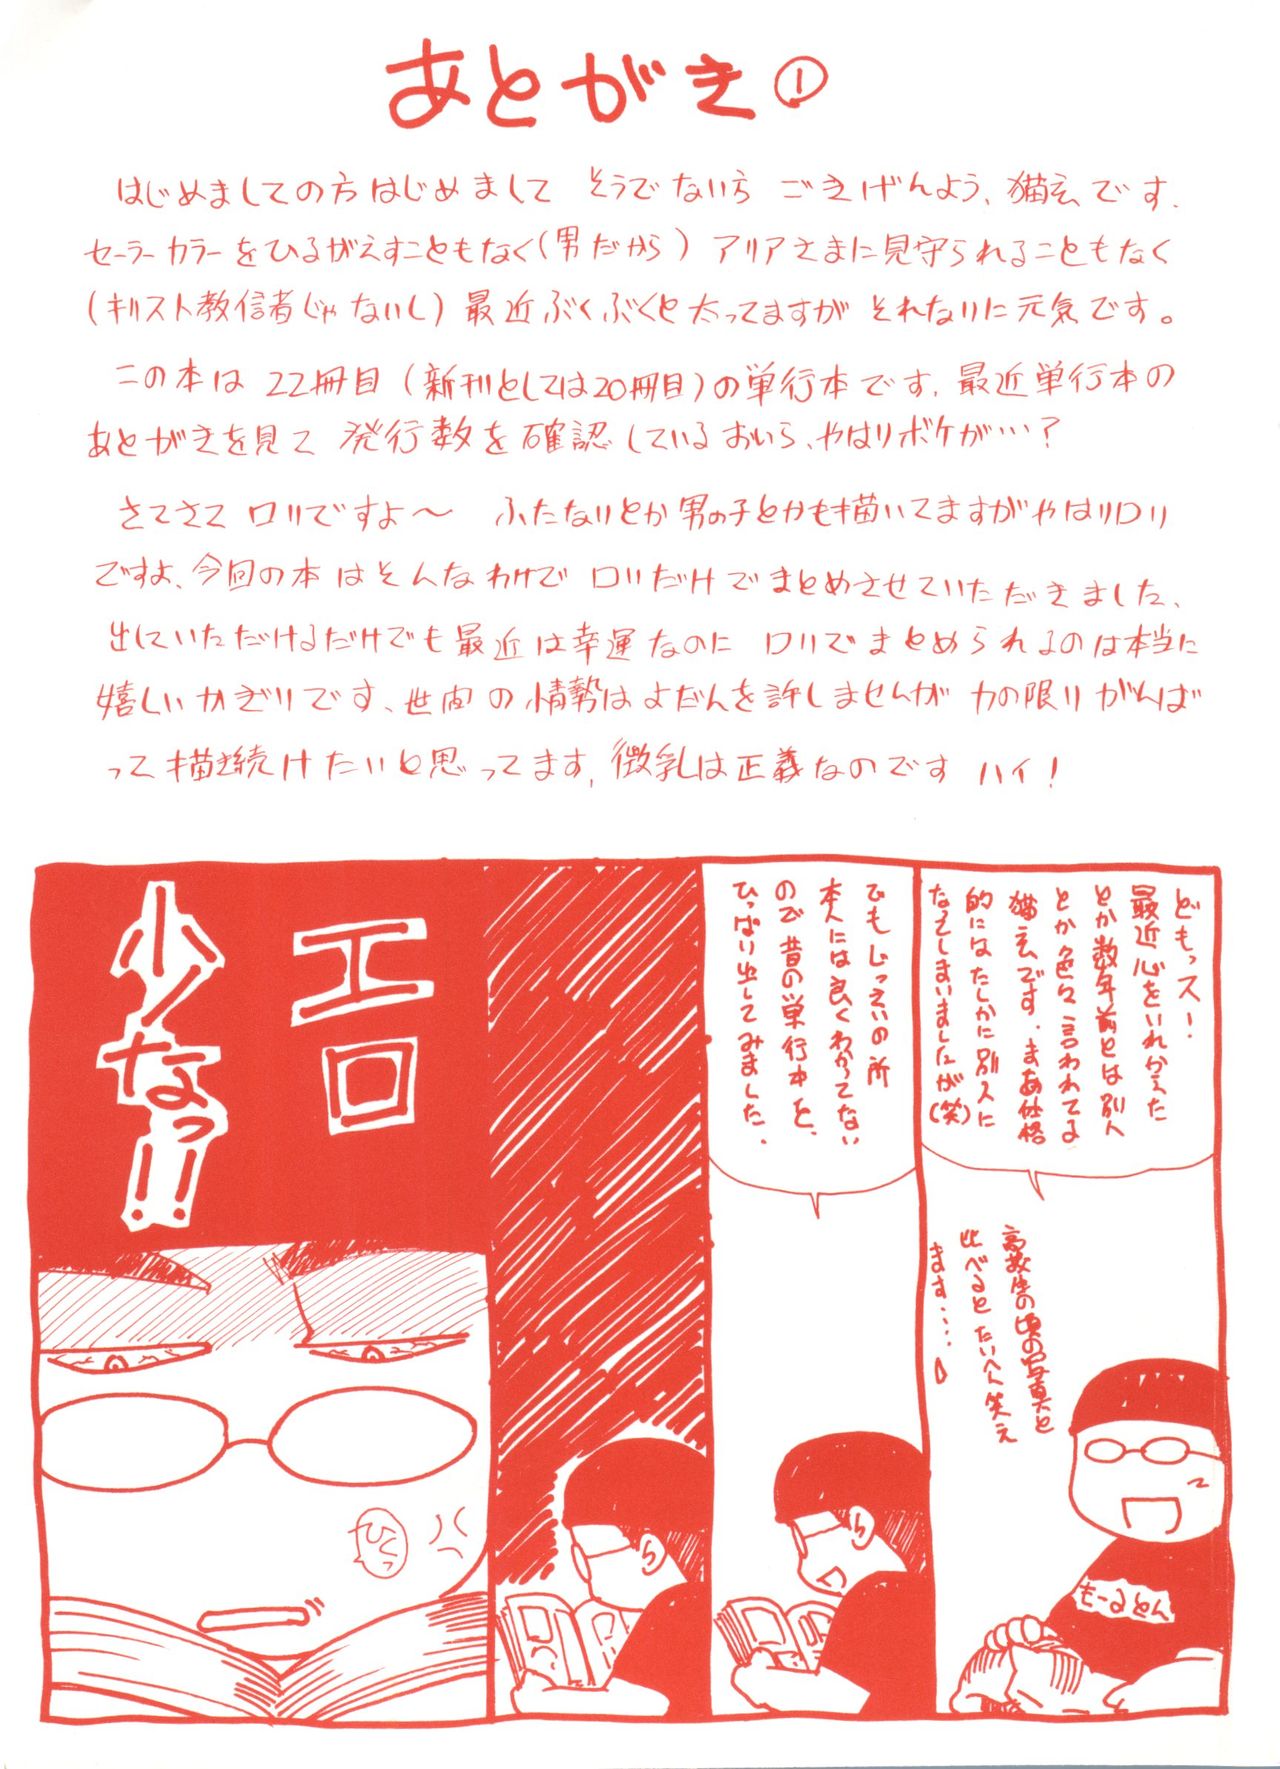 あとがき①
はじめましての方はじめまして そうでない方 ごきげんよう、猫玄です.
セーラーカラーをひるがえすこともなく(男だから) アリアさまに見守られることもなく
(キリスト教信者じゃないし) 最近ぶくぶくと太ってますが それなりに元気です。
この本は 22冊目 (新刊としては20冊目)の単行本です. 最近単行本の
あとがきを見て 発行数を確認しているおいら、やはりボケが…?
さてさて ロリですよ～ ふたなりとか男の子とかも描いてますがやはりロリ
ですよ、今回の本はそんなわけで ロリだけでまとめさせていただきました、
出していただけるだけでも最近は幸運なのに ロリでまとめられるのは本当に
嬉しいかぎりです、世間の情勢はよだんを許しませんが 力の限りがんば
って描き続けたいと思ってます, 微乳は正義なのです ハイ!
どもっス!
最近心をいれかえた
とか数年前とは別人
とか色々言われてる
猫玄です. まあ仕格
的にはたしかに別人に
なってしまいましたが(笑)
高校生の頃の写真と
比べると たいへん笑え
ます……
もーるとん
でもじっさいの所
本人には良くわかってない
ので 昔の単行本を、
ひっぱり出してみました.
エロ
少なっ!!
ひくっ